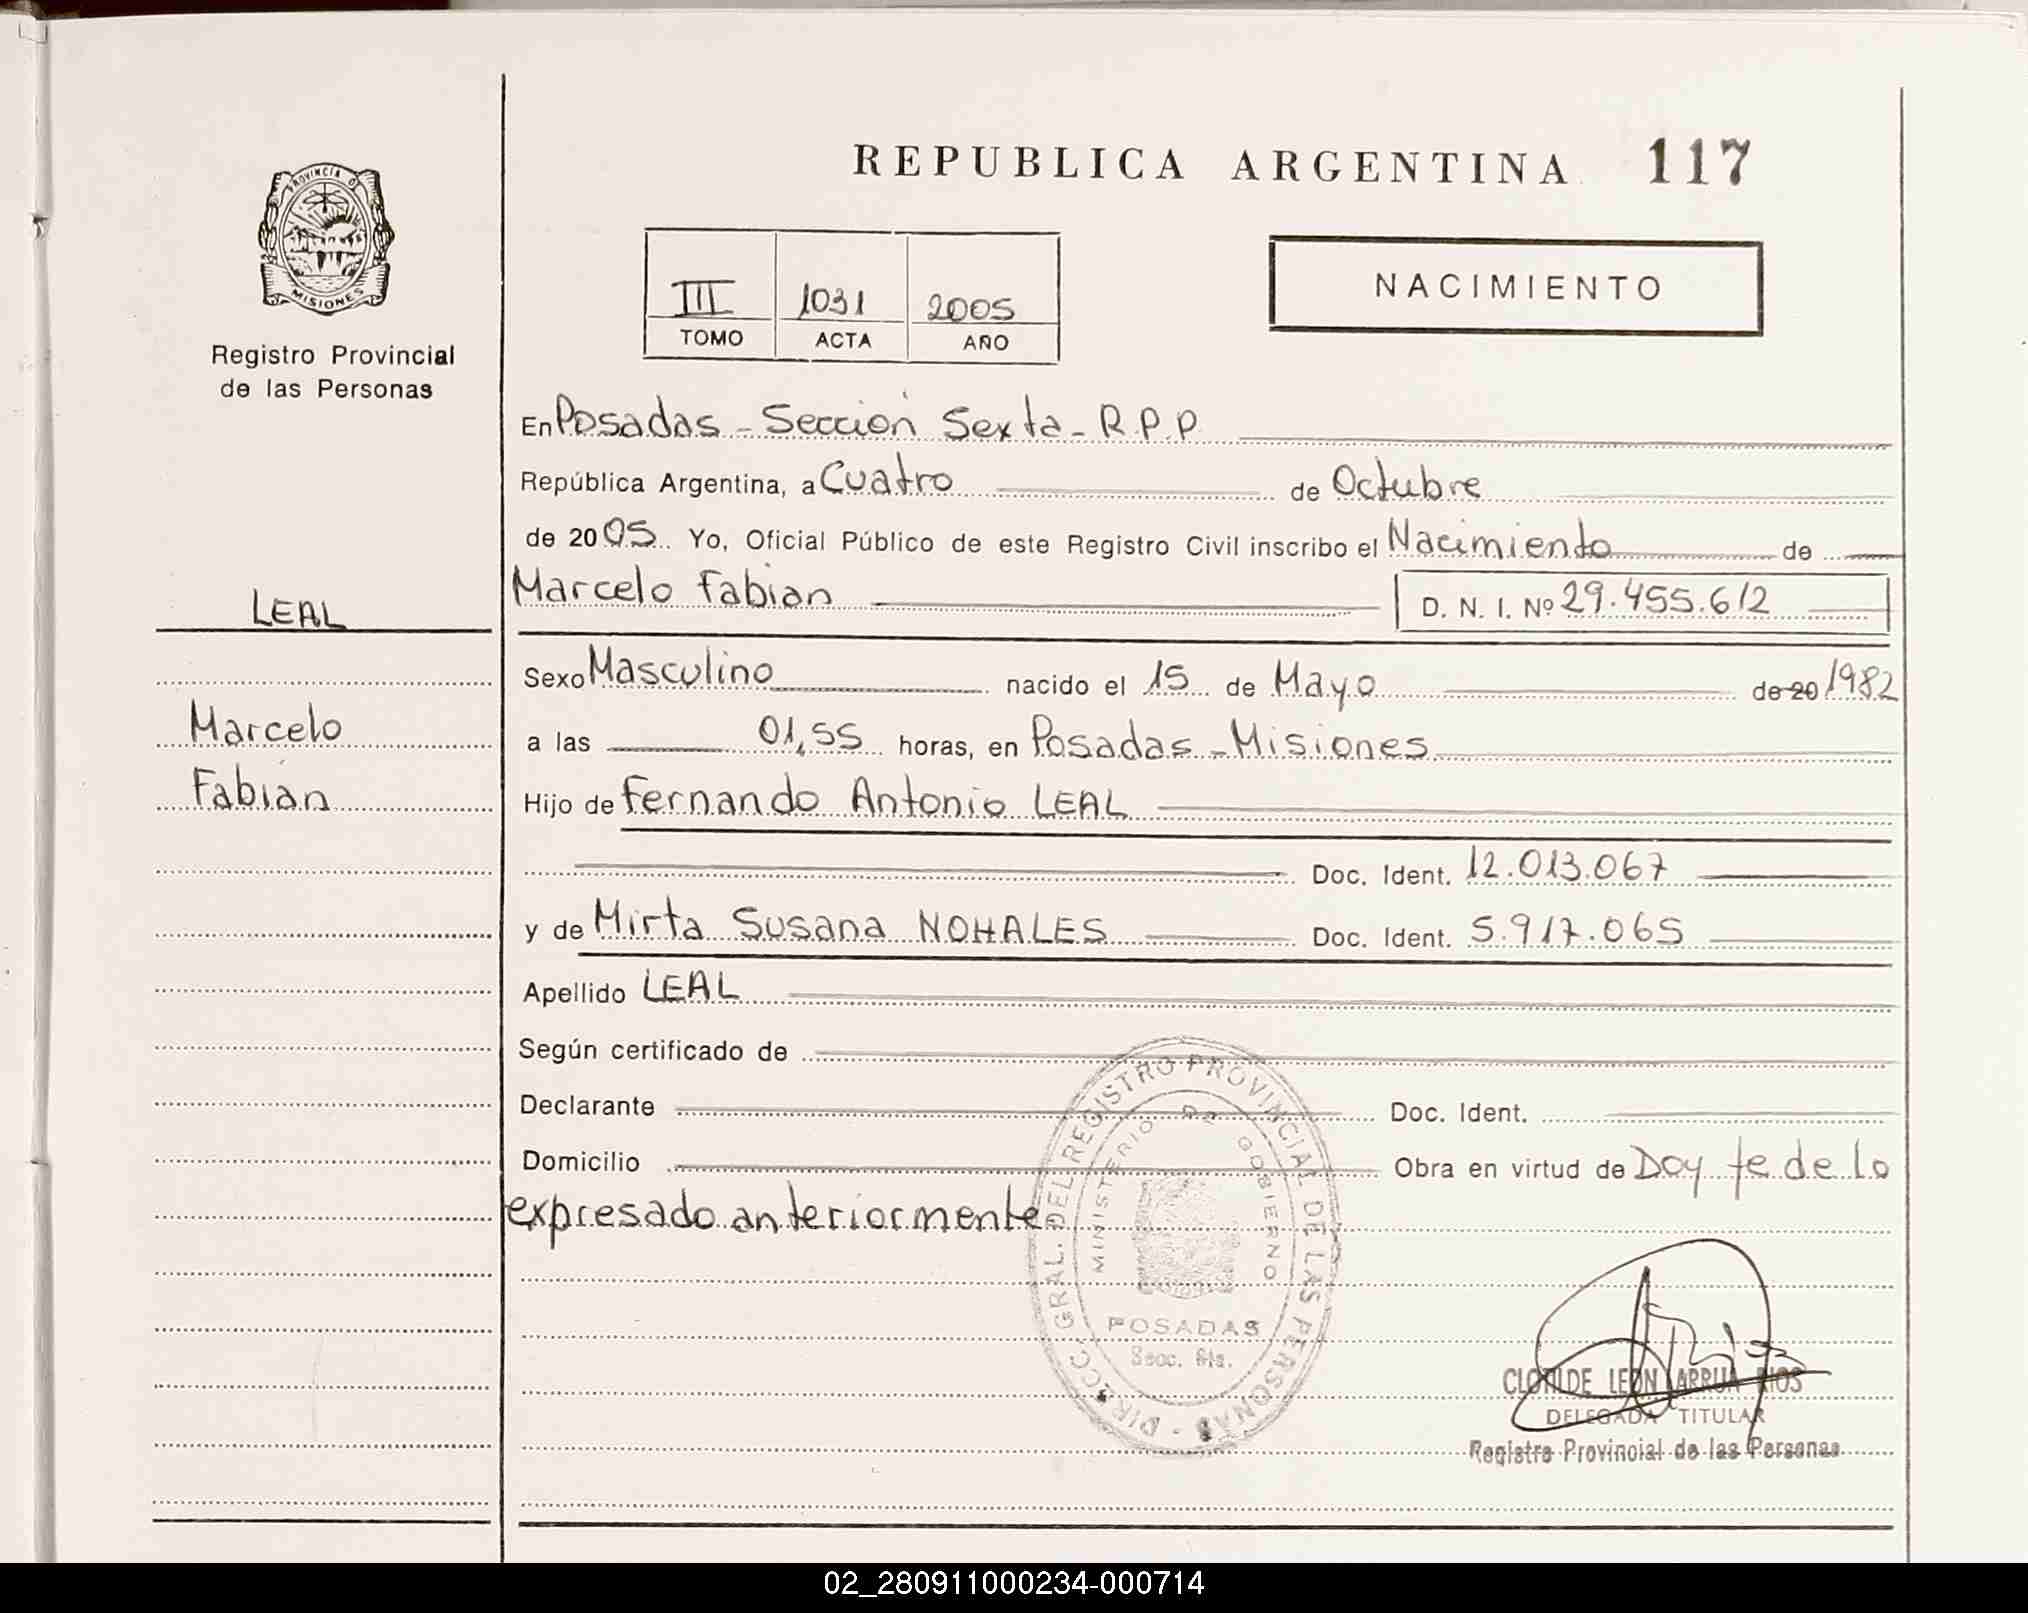 REPUBLICA ARGENTINA 117
PROVINCIA D
MISIONES
Registro Provincial
de las Personas
III 1031 2005
TOMO ACTA AÑO
NACIMIENTO
En Posadas - Sección Sexta - R.P.P
República Argentina, a Cuatro de Octubre
de 2005 Yo, Oficial Público de este Registro Civil inscribo el Nacimiento de
Marcelo Fabian D. N. I. Nº 29.455.612
LEAL
Sexo Masculino nacido el 15 de Mayo de 20 1982
Marcelo
a las 01,55 horas, en Posadas - Misiones
Fabián
Hijo de Fernando Antonio LEAL
Doc. Ident. 12.013.067
y de Mirta Susana NOHALES Doc. Ident. 5.917.065
Apellido LEAL
Según certificado de
Declarante Doc. Ident.
Domicilio Obra en virtud de Doy fe de lo
expresado anteriormente
DIRECC. GRAL. DEL REGISTRO PROVINCIAL DE LAS PERSONAS
MINISTERIO DE GOBIERNO
POSADAS
Secc. 6ta.
CLOTILDE LEON ARRUA RIOS
DELEGADA TITULAR
Registro Provincial de las Personas
02_280911000234-000714